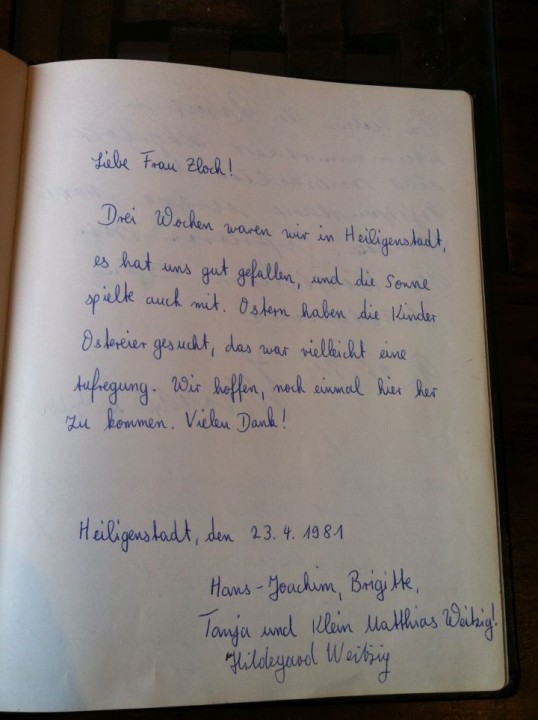 Liebe Frau Zloch!
Drei Wochen waren wir in Heiligenstadt,
es hat uns gut gefallen, und die Sonne
spielte auch mit. Ostern haben die Kinder
Ostereier gesucht, das war vielleicht eine
Aufregung. Wir hoffen, noch einmal hier her
zu kommen. Vielen Dank!
Heiligenstadt, den 23.4.1981
Hans-Joachim, Brigitte,
Tanja und Klein Matthias Weitzig!
Hildegard Weitzig